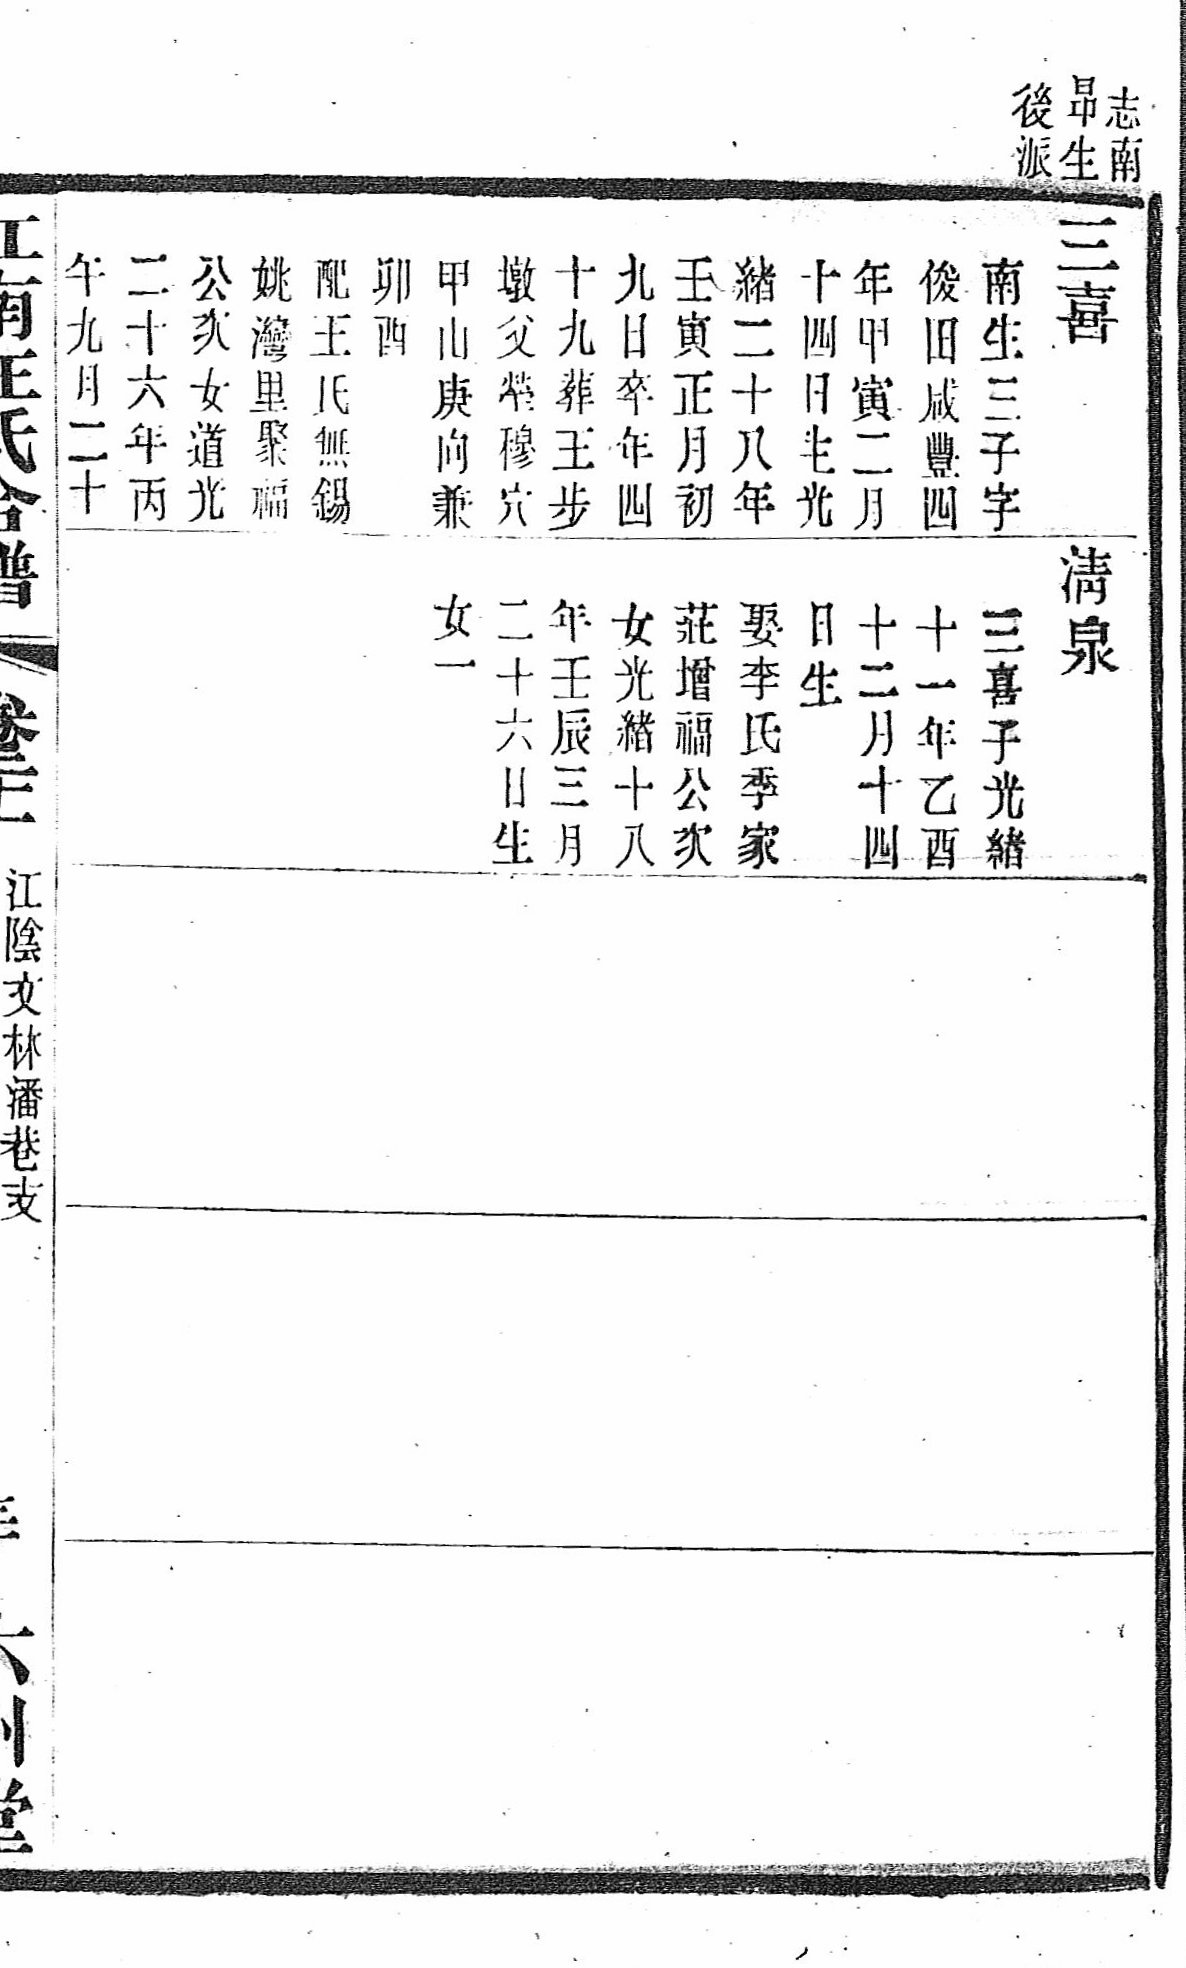 志南
昂生
後派
三喜
南生三子字
俊田咸豐四
年甲寅二月
十四日生光
緒二十八年
壬寅正月初
九日卒年四
十九葬王步
墩父塋穆穴
甲山庚向兼
卯酉
配王氏無錫
姚灣里聚福
公次女道光
二十六年丙
午九月二十
清泉
三喜子光緒
十一年乙酉
十二月十四
日生
娶李氏季家
莊增福公次
女光緒十八
年壬辰三月
二十六日生
女一
江南王氏合譜
卷三上
江陰文林潘巷支
六州堂